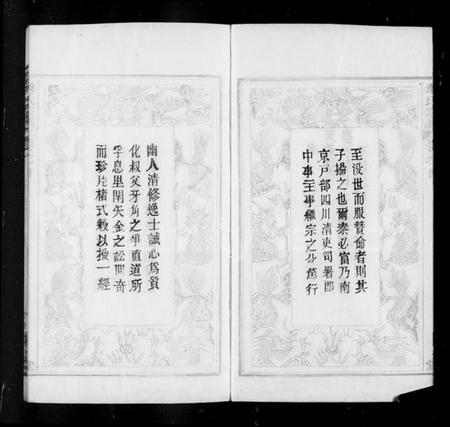 至没世而服贊命者則其
子揚之也爾秦必富乃南
京戸部四川清吏司署郎
中事主事繼宗之父篤行
幽人清修逸士誠心爲質
化叔父牙角之爭直道所
孚息里閈矢金之訟間奇
而珍片楮式穀以授一經